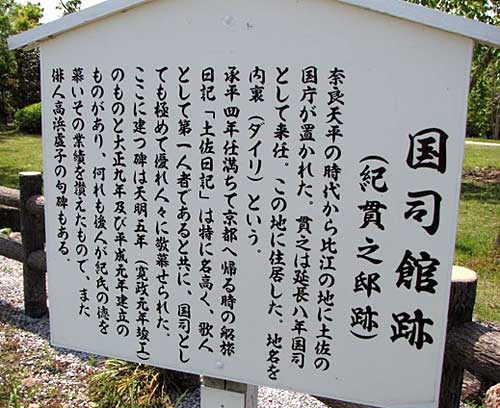 国司館跡
(紀貫之邸跡)
奈良天平の時代から比江の地に土佐の
国庁が置かれた。貫之は延長八年国司
として来任。この地に住居した。地名を
内裏(ダイリ)という。
承平四年任満ちて京都へ帰る時の船旅
日記「土佐日記」は特に名高く、歌人
として第一人者であると共に、国司とし
ても極めて優れ人々に敬慕せられた。
ここに建つ碑は天明五年(寛政元年竣工)
のものと大正九年及び平成元年建立の
ものがあり、何れも後人が紀氏の徳を
慕いその業績を讃えたもので、また
俳人高浜虚子の句碑もある。